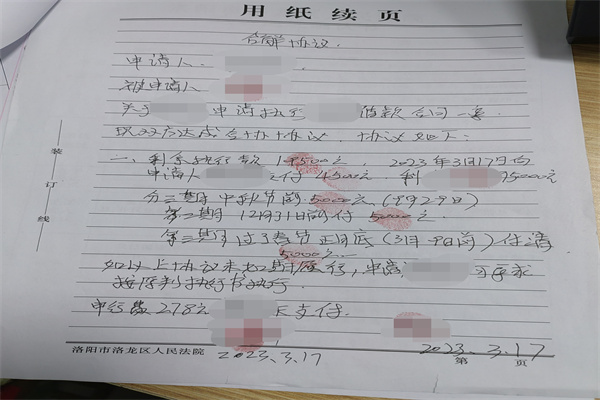 用纸续页
合解协议.
申请人.
被申请人
关于 申请执行 借款合同一案
现双方达成合协协议，协议如下：
一、剩余执行款19500元，2023年3月17日向
申请人 支付4500元 剩 15000元
分三期 中秋节前5000元（9月29日）
第二期 12月31日前付5000元
第三期过了春节正月底（3月9日前）付清
5000元
如以上协议未如期履行，申请 可要求
按原判执行书执行.
申行费278元 支付.
2023.3.17 2023.3.17
洛阳市洛龙区人民法院 第 页
装订线